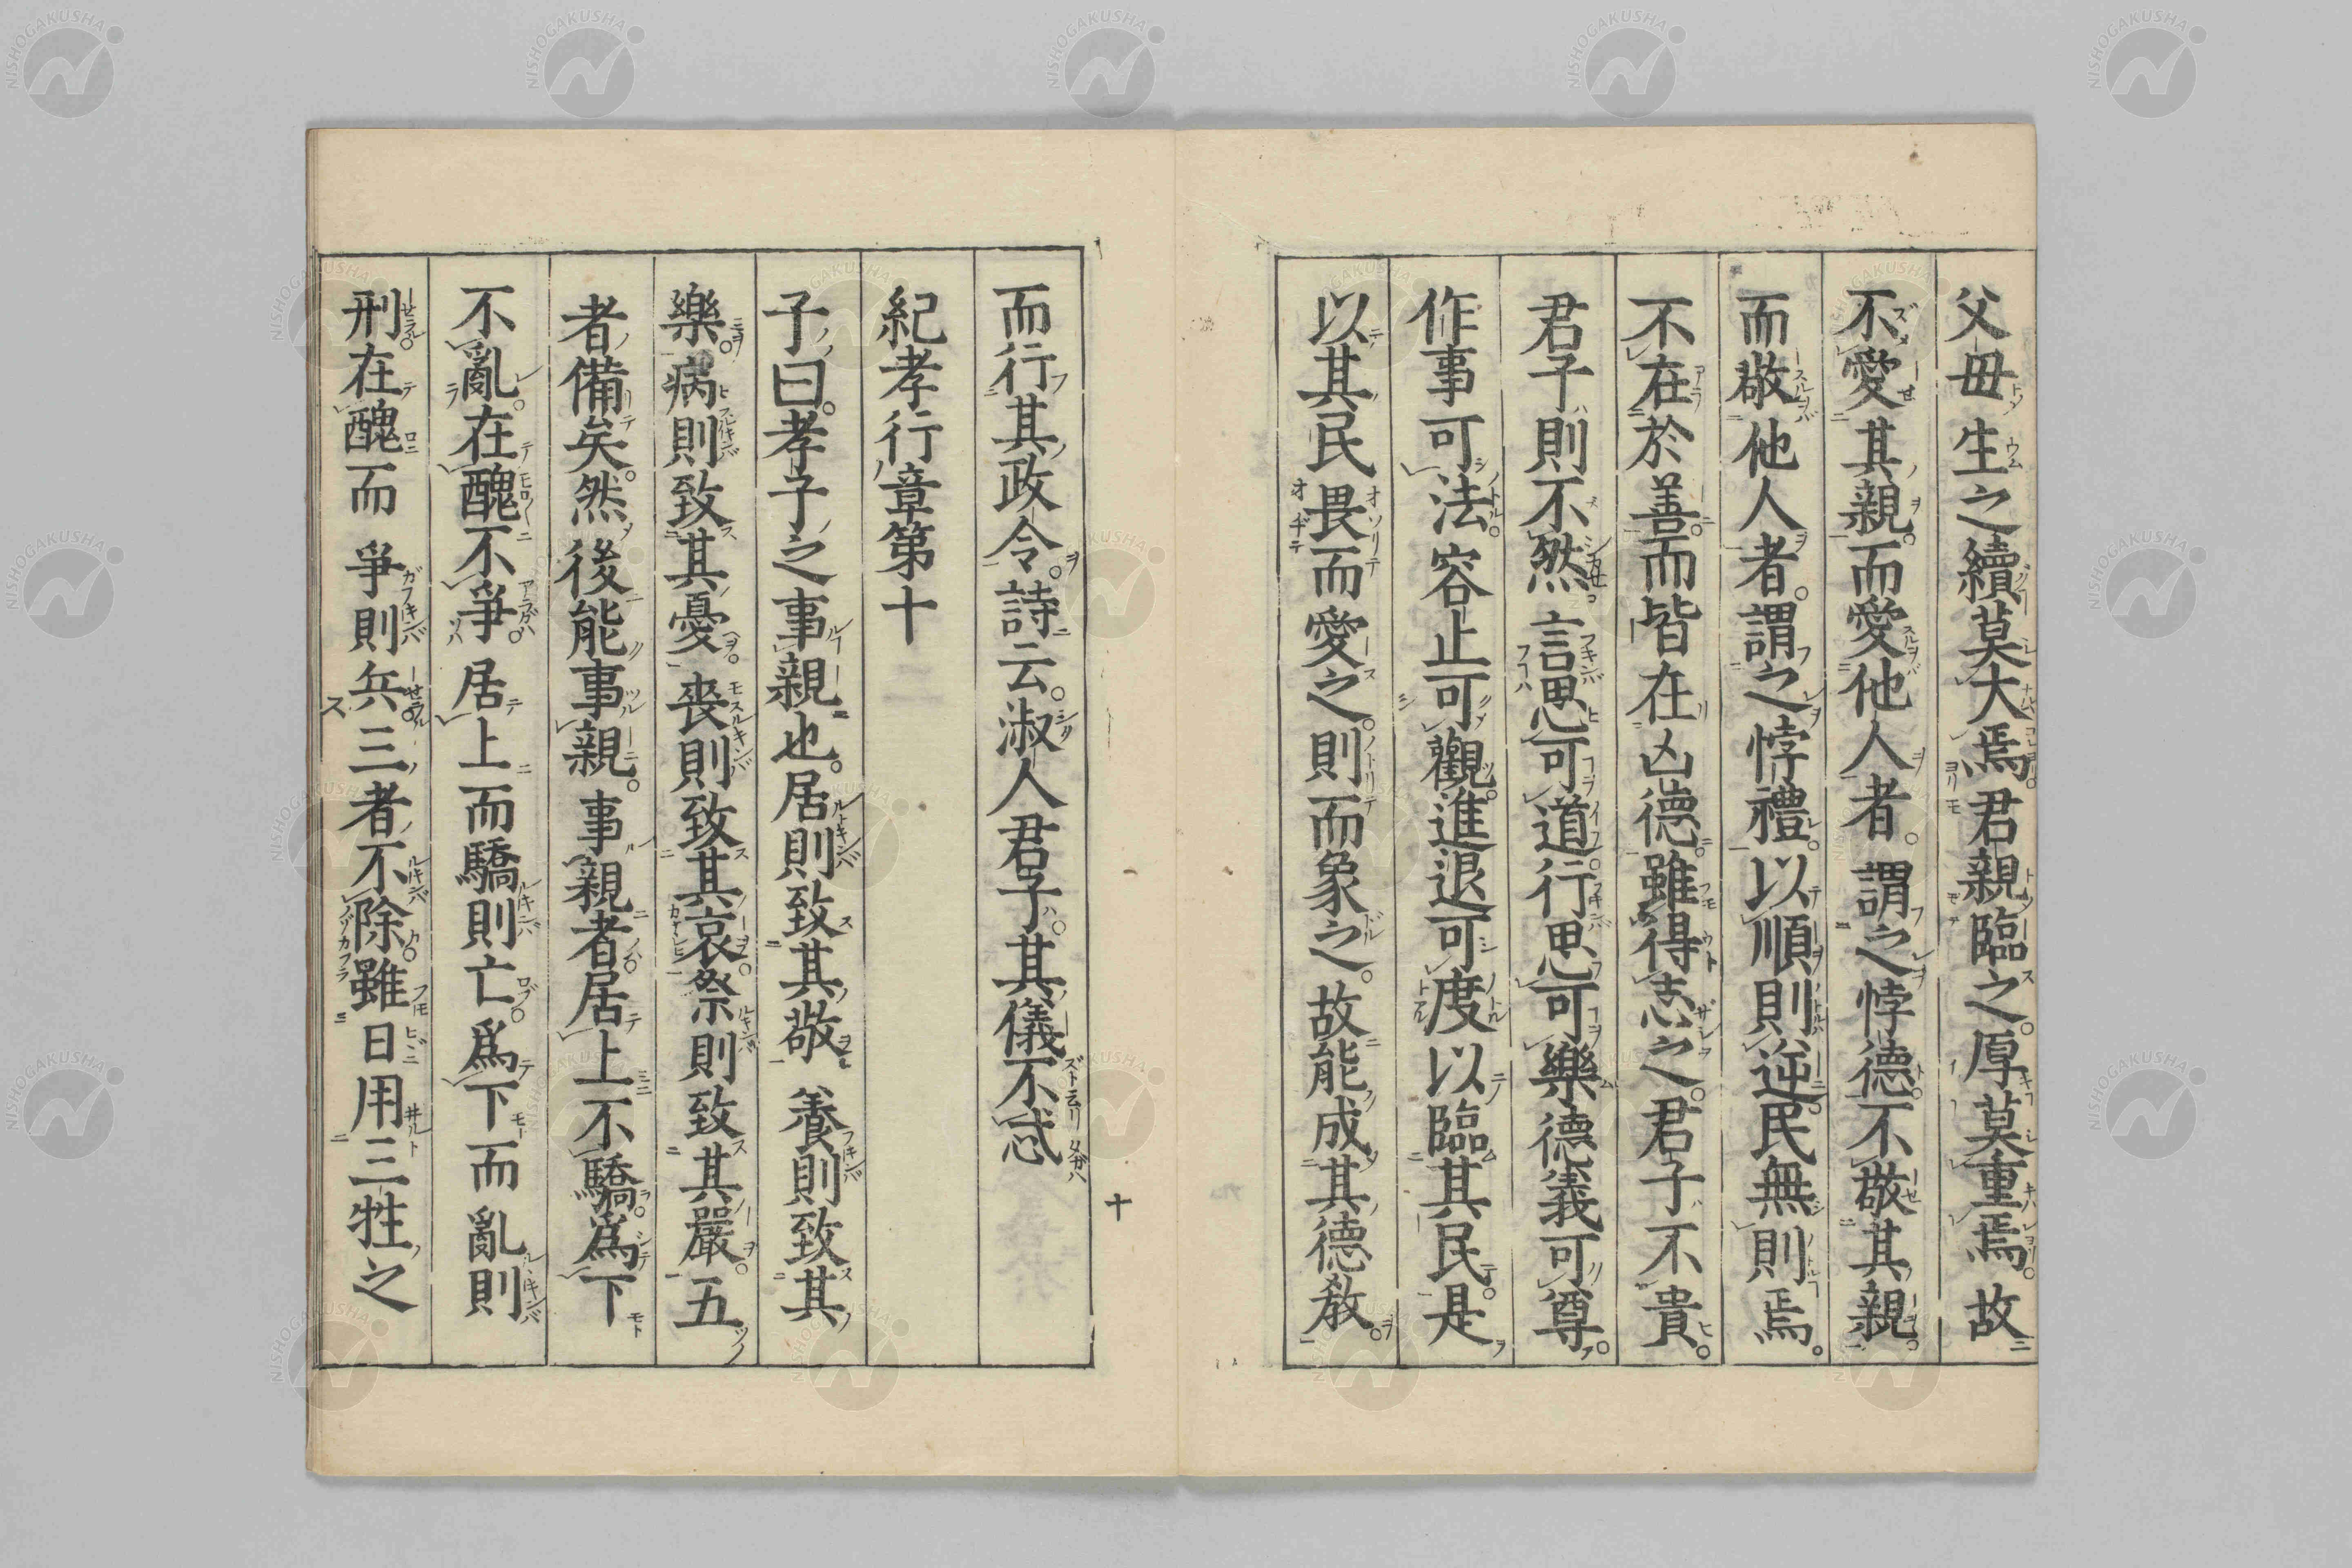 父母生之續莫大焉君親臨之厚莫重焉故
不愛其親而愛他人者謂之悖德不敬其親
而敬他人者謂之悖禮以順則逆民無則焉
不在於善而皆在凶德雖得志之君子不貴
君子則不然言思可道行思可樂德義可尊
作事可法容止可觀進退可度以臨其民是
以其民畏而愛之則而象之故能成其德教
十
而行其政令詩云淑人君子其儀不忒
紀孝行章第十
子曰孝子之事親也居則致其敬養則致其
樂病則致其憂喪則致其哀祭則致其嚴五
者備矣然後能事親事親者居上不驕爲下
不亂在醜不爭居上而驕則亡爲下而亂則
刑在醜而爭則兵三者不除雖日用三牲之
NISHOGAKUSHA